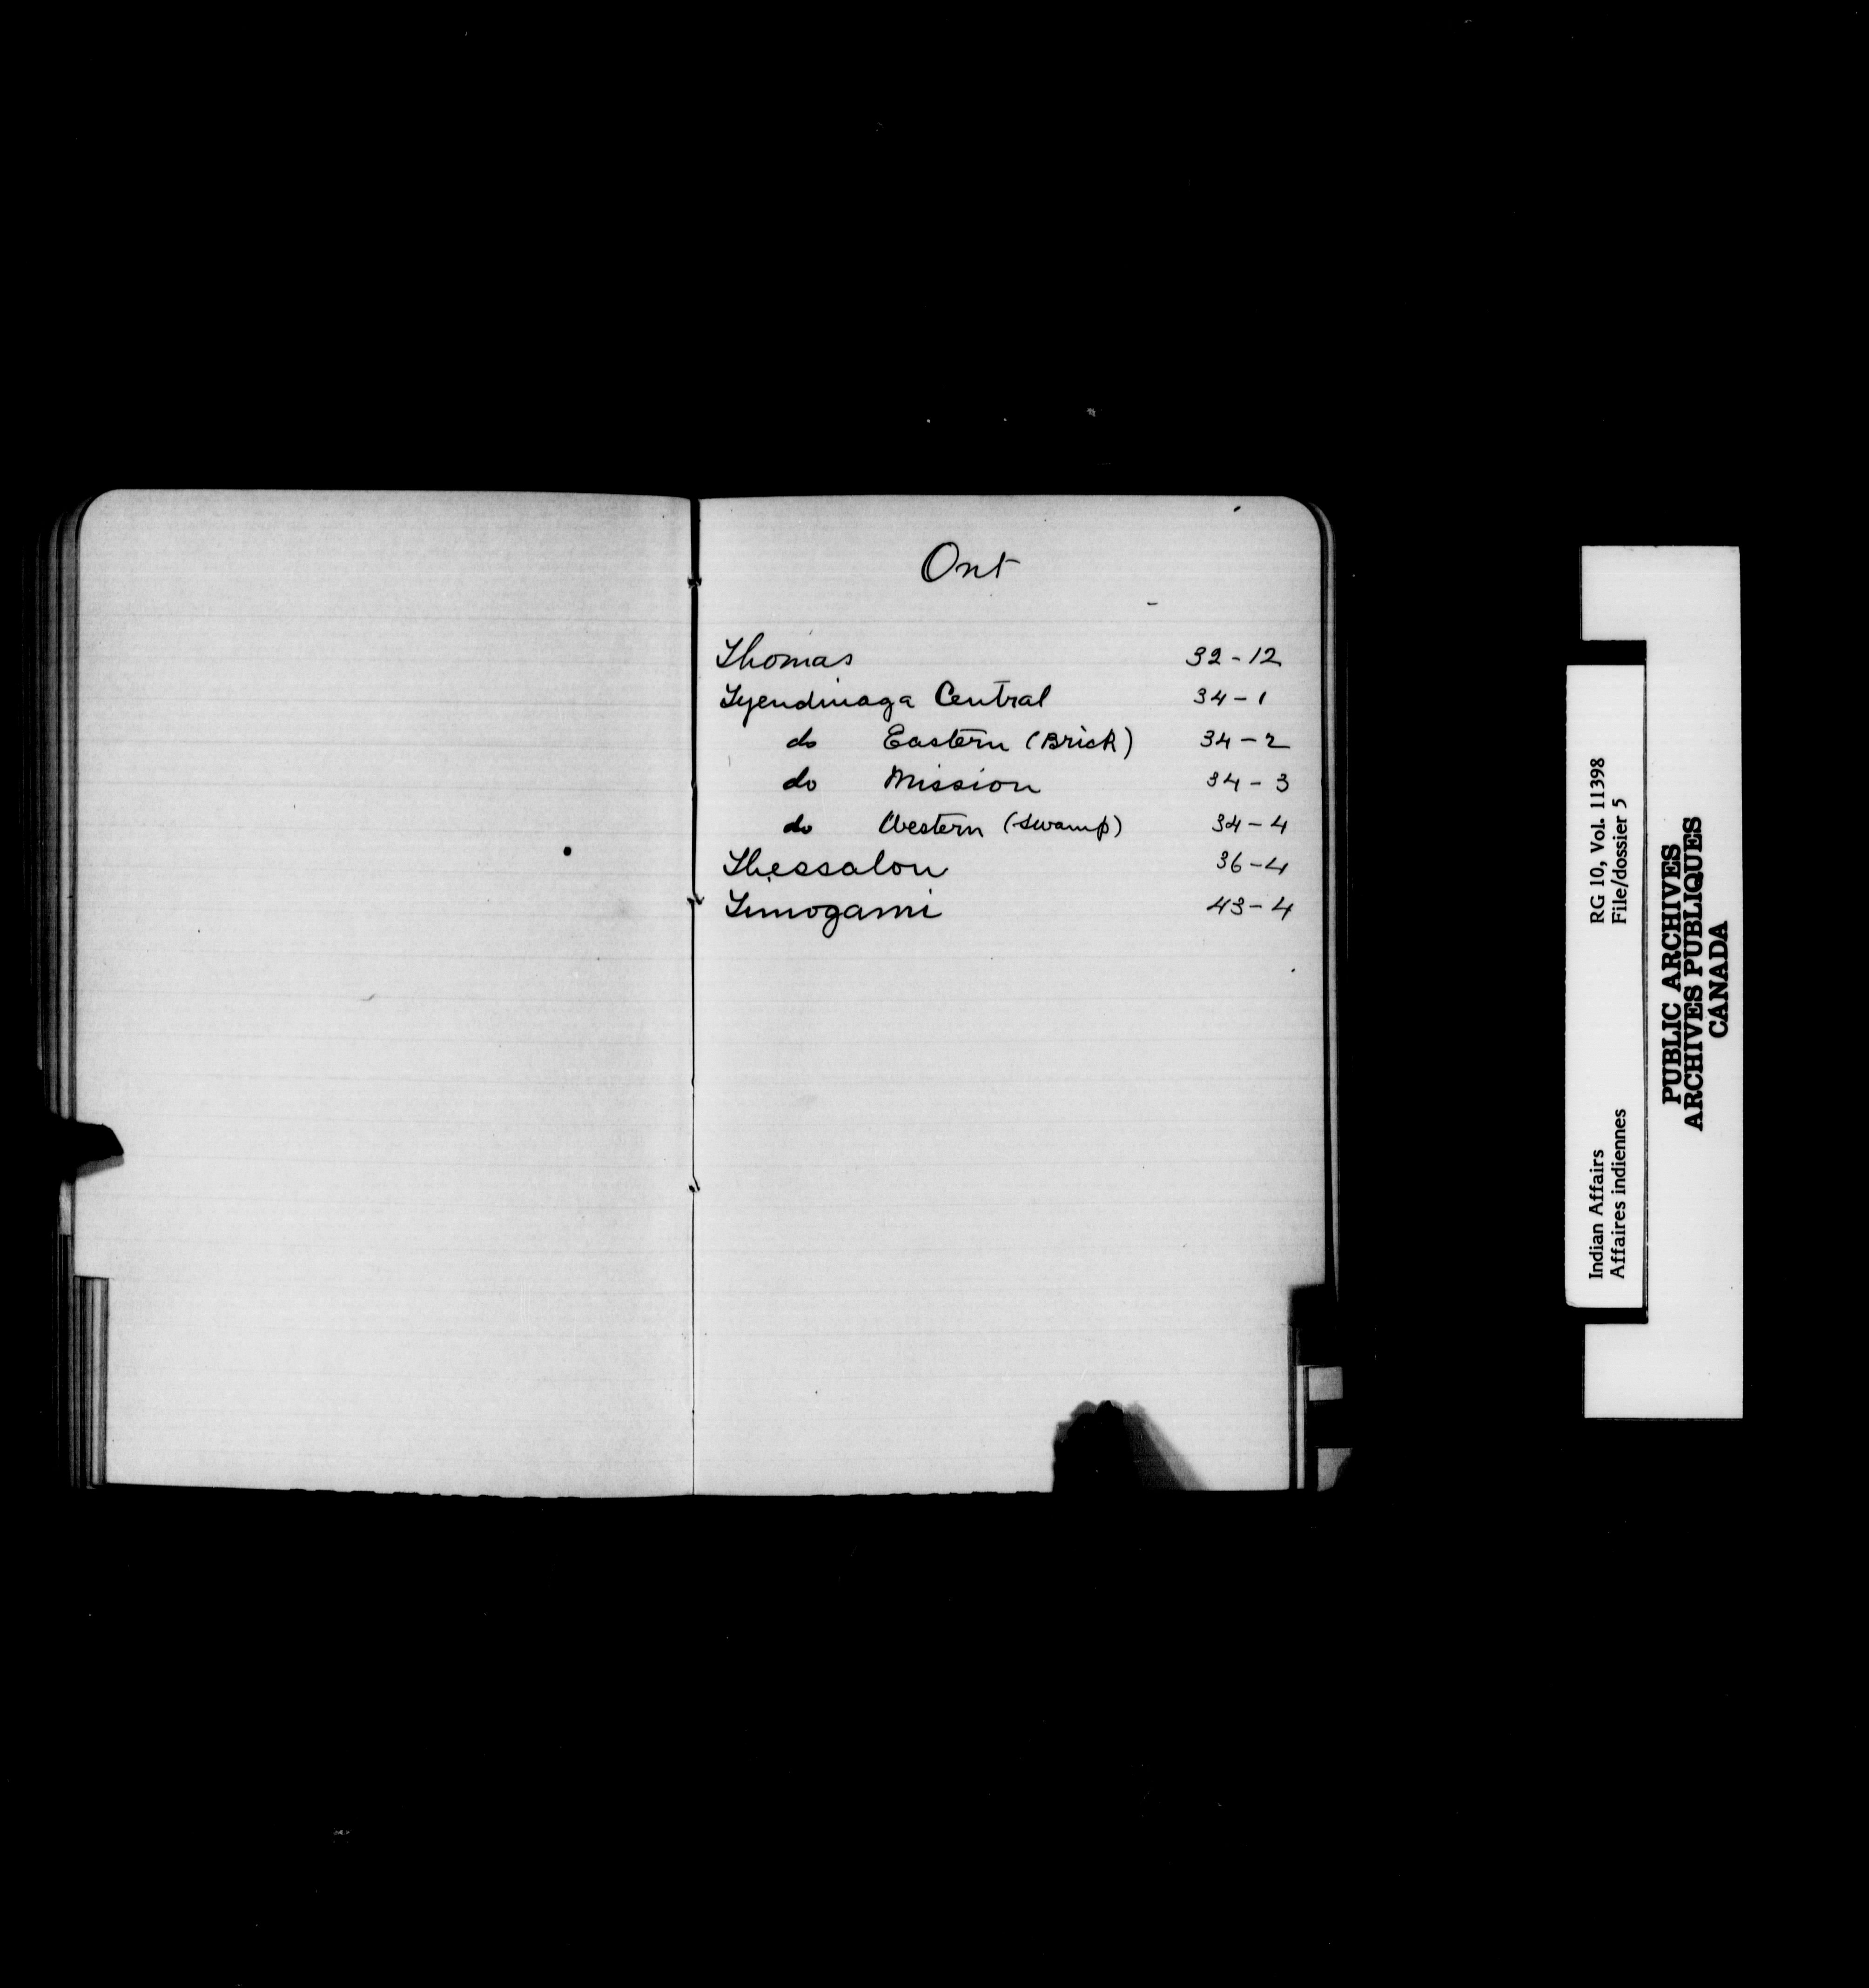 Ont
Thomas 32-12
Tyendinaga Central 34-1
do Eastern (Brick) 34-2
do Mission 34-3
do Western (Swamp) 34-4
Thessalon 36-4
Timogami 43-4
Indian Affairs RG 10, Vol. 11398
Affaires indiennes File/dossier 5
PUBLIC ARCHIVES
ARCHIVES PUBLIQUES
CANADA